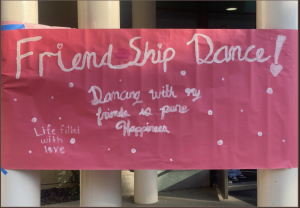 FriendShip Dance!
Dancing with my
friends is pure
Happiness
Life filled
with
love